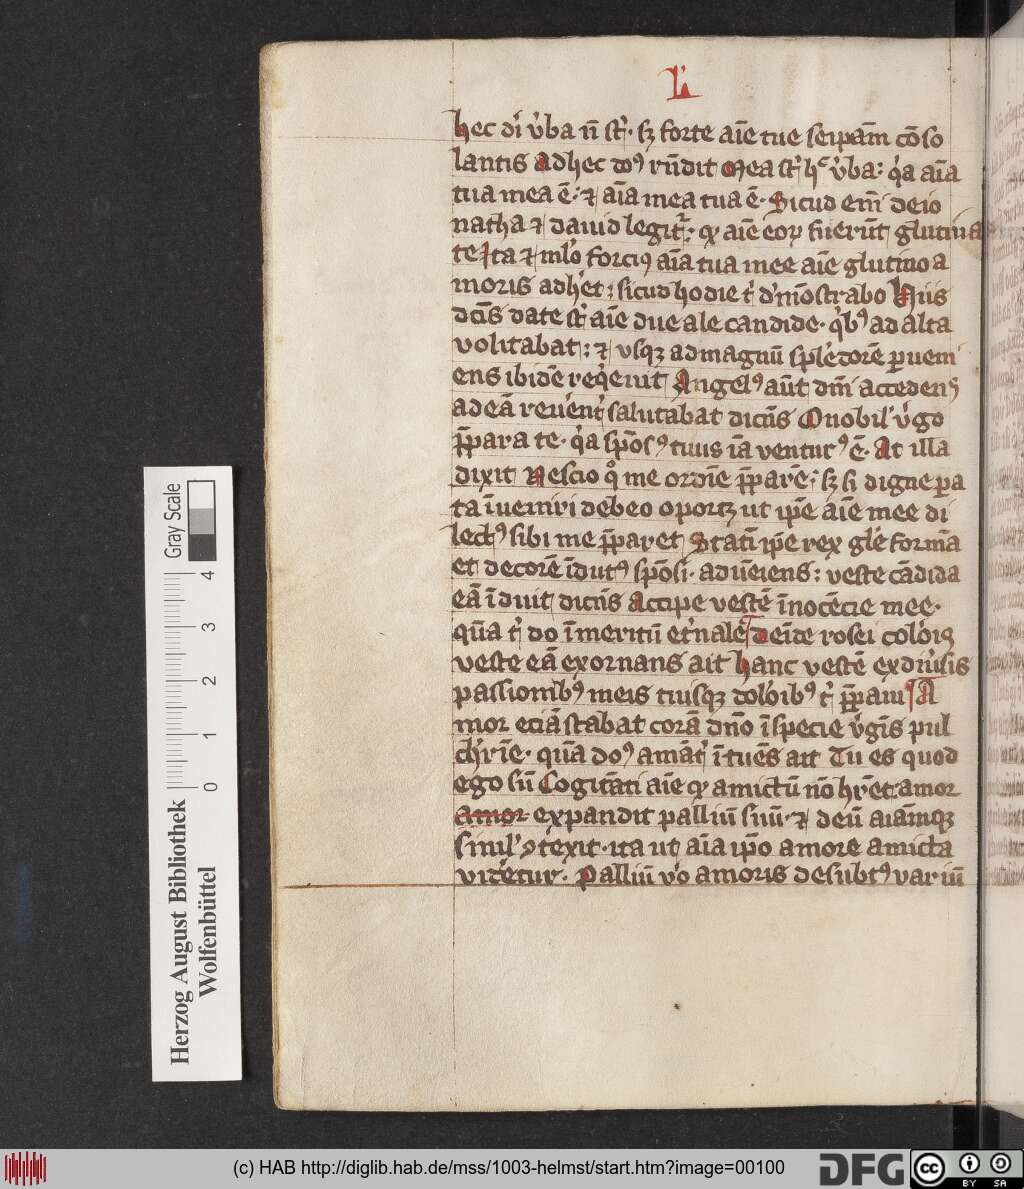 L'
hec di v̓ba n̄ st̄. sȝ forte aīe tue seipam̄ cōso
lantis Adhec dn̄s rn̄dit Mea st̄ h̄ v̓ba: q̓a aīa
tua mea ē. ⁊ aīa mea tua ē. Sicud em̄ de io
natha ⁊ dauid legit̄. qꝫ aīe eoꝝ fuerūt glutina
te Ita ⁊ ml̓o forciꝰ aīa tua mee aīe glutino a
moris adh̓et: sicud hodie t̓ d̓mōstrabo Hiis
dc̄is date st̄ aīe due ale candide. q̓bꝰ ad alta
volitabat: ⁊ vsqꝫ ad magnū splēdorē ꝑueni
ens ibidē reqeuit Angelꝰ aūt dnī accedens
ad eā reuerent̓ salutabat dicēs O nobil̓ v̓go
p̄para te. q̓a spōsꝰ tuus iā venturꝰ ē. At illa
dixit Nescio qͦ me ordīe p̄parē: sȝ si digne ꝑa
ta īueniri debeo oportꝫ ut ip̄e aīe mee di
lectꝰ sibi me p̄paret Statī ip̄e rex gl̓e formā
et decorē īdutꝰ spōsi. adueīens: veste cādida
eā īduit dicēs Accipe vestē īnocēcie mee.
quā t̓ do ī meritū et̓nale deīde rosei coloris
veste eā exornans ait Hanc vestē ex diu̓sis
passionibꝰ meis tuisqꝫ dolōibꝰ t̓ p̄paui A
mor eciā stabat corā dn̄o ī specie v̓gīs pul
ch̓rīe. quā dn̄s amāt̓ ītuēs ait Tu es quod
ego sū Cogitāti aīe qꝫ amictū nō hr̄et amor
amor expandit palliū suū. ⁊ deū aīāmqꝫ
simil̓ ꝯtexit. ita ut aīa ip̄o amore amicta
videtur. Palliū v̓o amoris desubtꝰ variū
Herzog August Bibliothek
Wolfenbüttel
0 1 2 3 4
Gray Scale
(c) HAB http://diglib.hab.de/mss/1003-helmst/start.htm?image=00100
DFG
cc BY SA